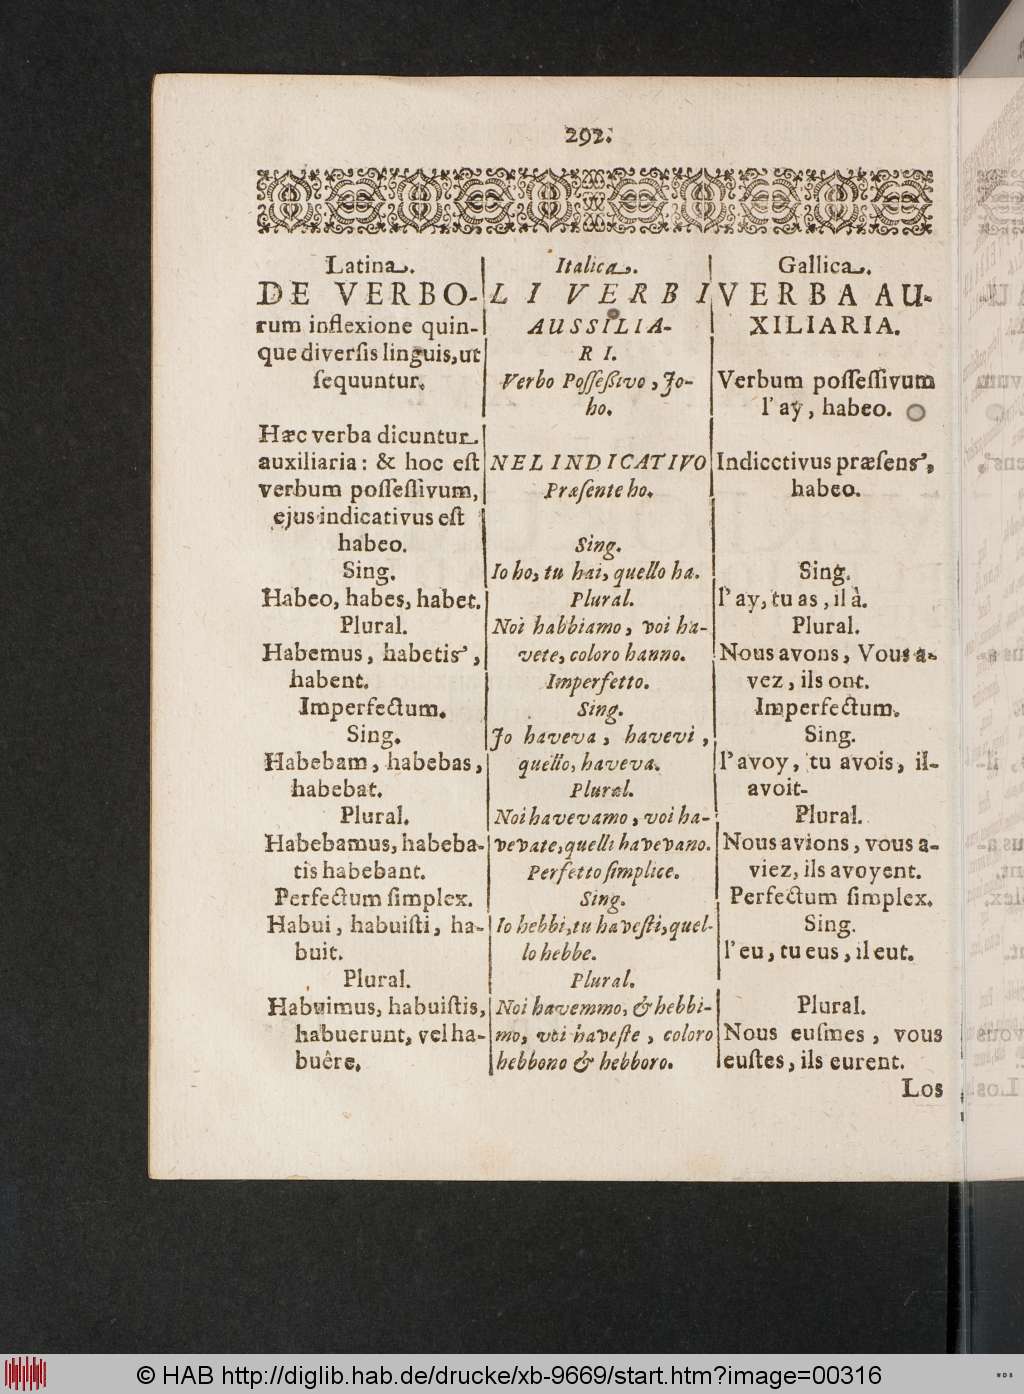 292.
Latina.
DE VERBO-
rum inflexione quin-
que diverſis linguis, ut
ſequuntur.
Hæc verba dicuntur
auxiliaria: & hoc eſt
verbum poſſeſſivum,
ejus indicativus eſt
habeo.
Sing.
Habeo, habes, habet.
Plural.
Habemus, habetis,
habent.
Imperfectum.
Sing.
Habebam, habebas,
habebat.
Plural.
Habebamus, habeba-
tis habebant.
Perfectum ſimplex.
Habui, habuiſti, ha-
buit.
Plural.
Habuimus, habuiſtis,
habuerunt, vel ha-
buêre.
Italica.
LI VERBI
AUSSILIA-
RI.
Verbo Poſſeßivo, Jo-
ho.
NEL INDICATIVO
Præſente ho.
Sing.
Io ho, tu hai, quello ha.
Plural.
Noi habbiamo, voi ha-
vete, coloro hanno.
Imperfetto.
Sing.
Jo haveva, havevi,
quello, haveva.
Plural.
Noi havevamo, voi ha-
vevate, quelli havevano.
Perfetto ſimplice.
Sing.
Io hebbi, tu haveſti, quel-
lo hebbe.
Plural.
Noi havemmo, & hebbi-
mo, voi haveſte, coloro
hebbono & hebboro.
Gallica.
VERBA AU-
XILIARIA.
Verbum poſſeſſivum
l'ay, habeo.
Indicctivus præſens,
habeo.
Sing.
l'ay, tu as, il à.
Plural.
Nous avons, Vous a-
vez, ils ont.
Imperfectum.
Sing.
l'avoy, tu avois, il-
avoit-
Plural.
Nous avions, vous a-
viez, ils avoyent.
Perfectum ſimplex.
Sing.
l'eu, tu eus, il eut.
Plural.
Nous euſmes, vous
euſtes, ils eurent.
Los
© HAB http://diglib.hab.de/drucke/xb-9669/start.htm?image=00316